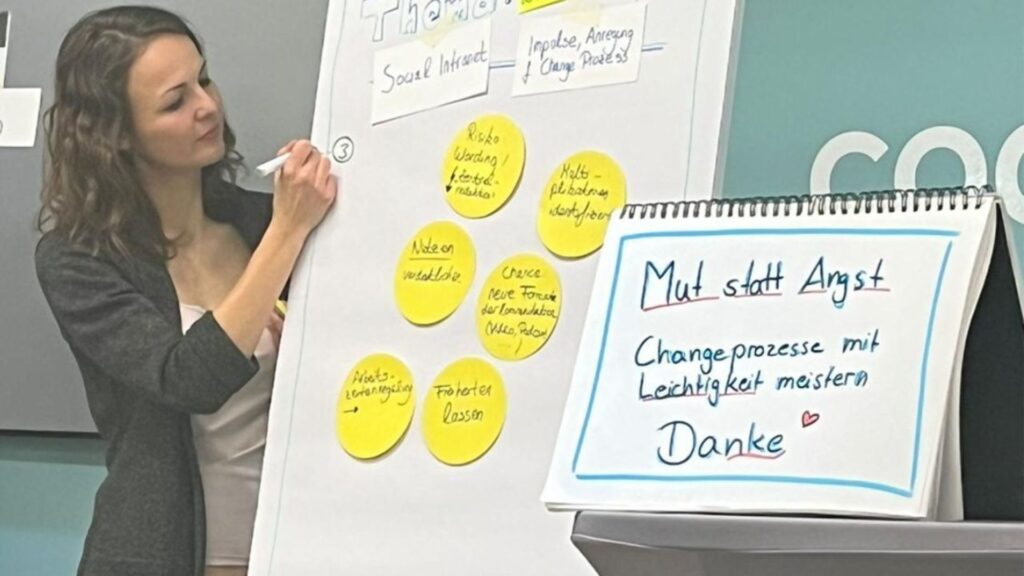 Them
Social Intranet
Impulse, Anregung
f. Change Prozess
3
Risiko
Wording /
Multi-
plikatoren
identifizieren
Nutzen
Chance
neue Formate
der Kommunikation
(Video, Podcast)
Arbeits-
→
Frühtarten
lassen
coo
Mut statt Angst
Changeprozesse mit
Leichtigkeit meistern
Danke